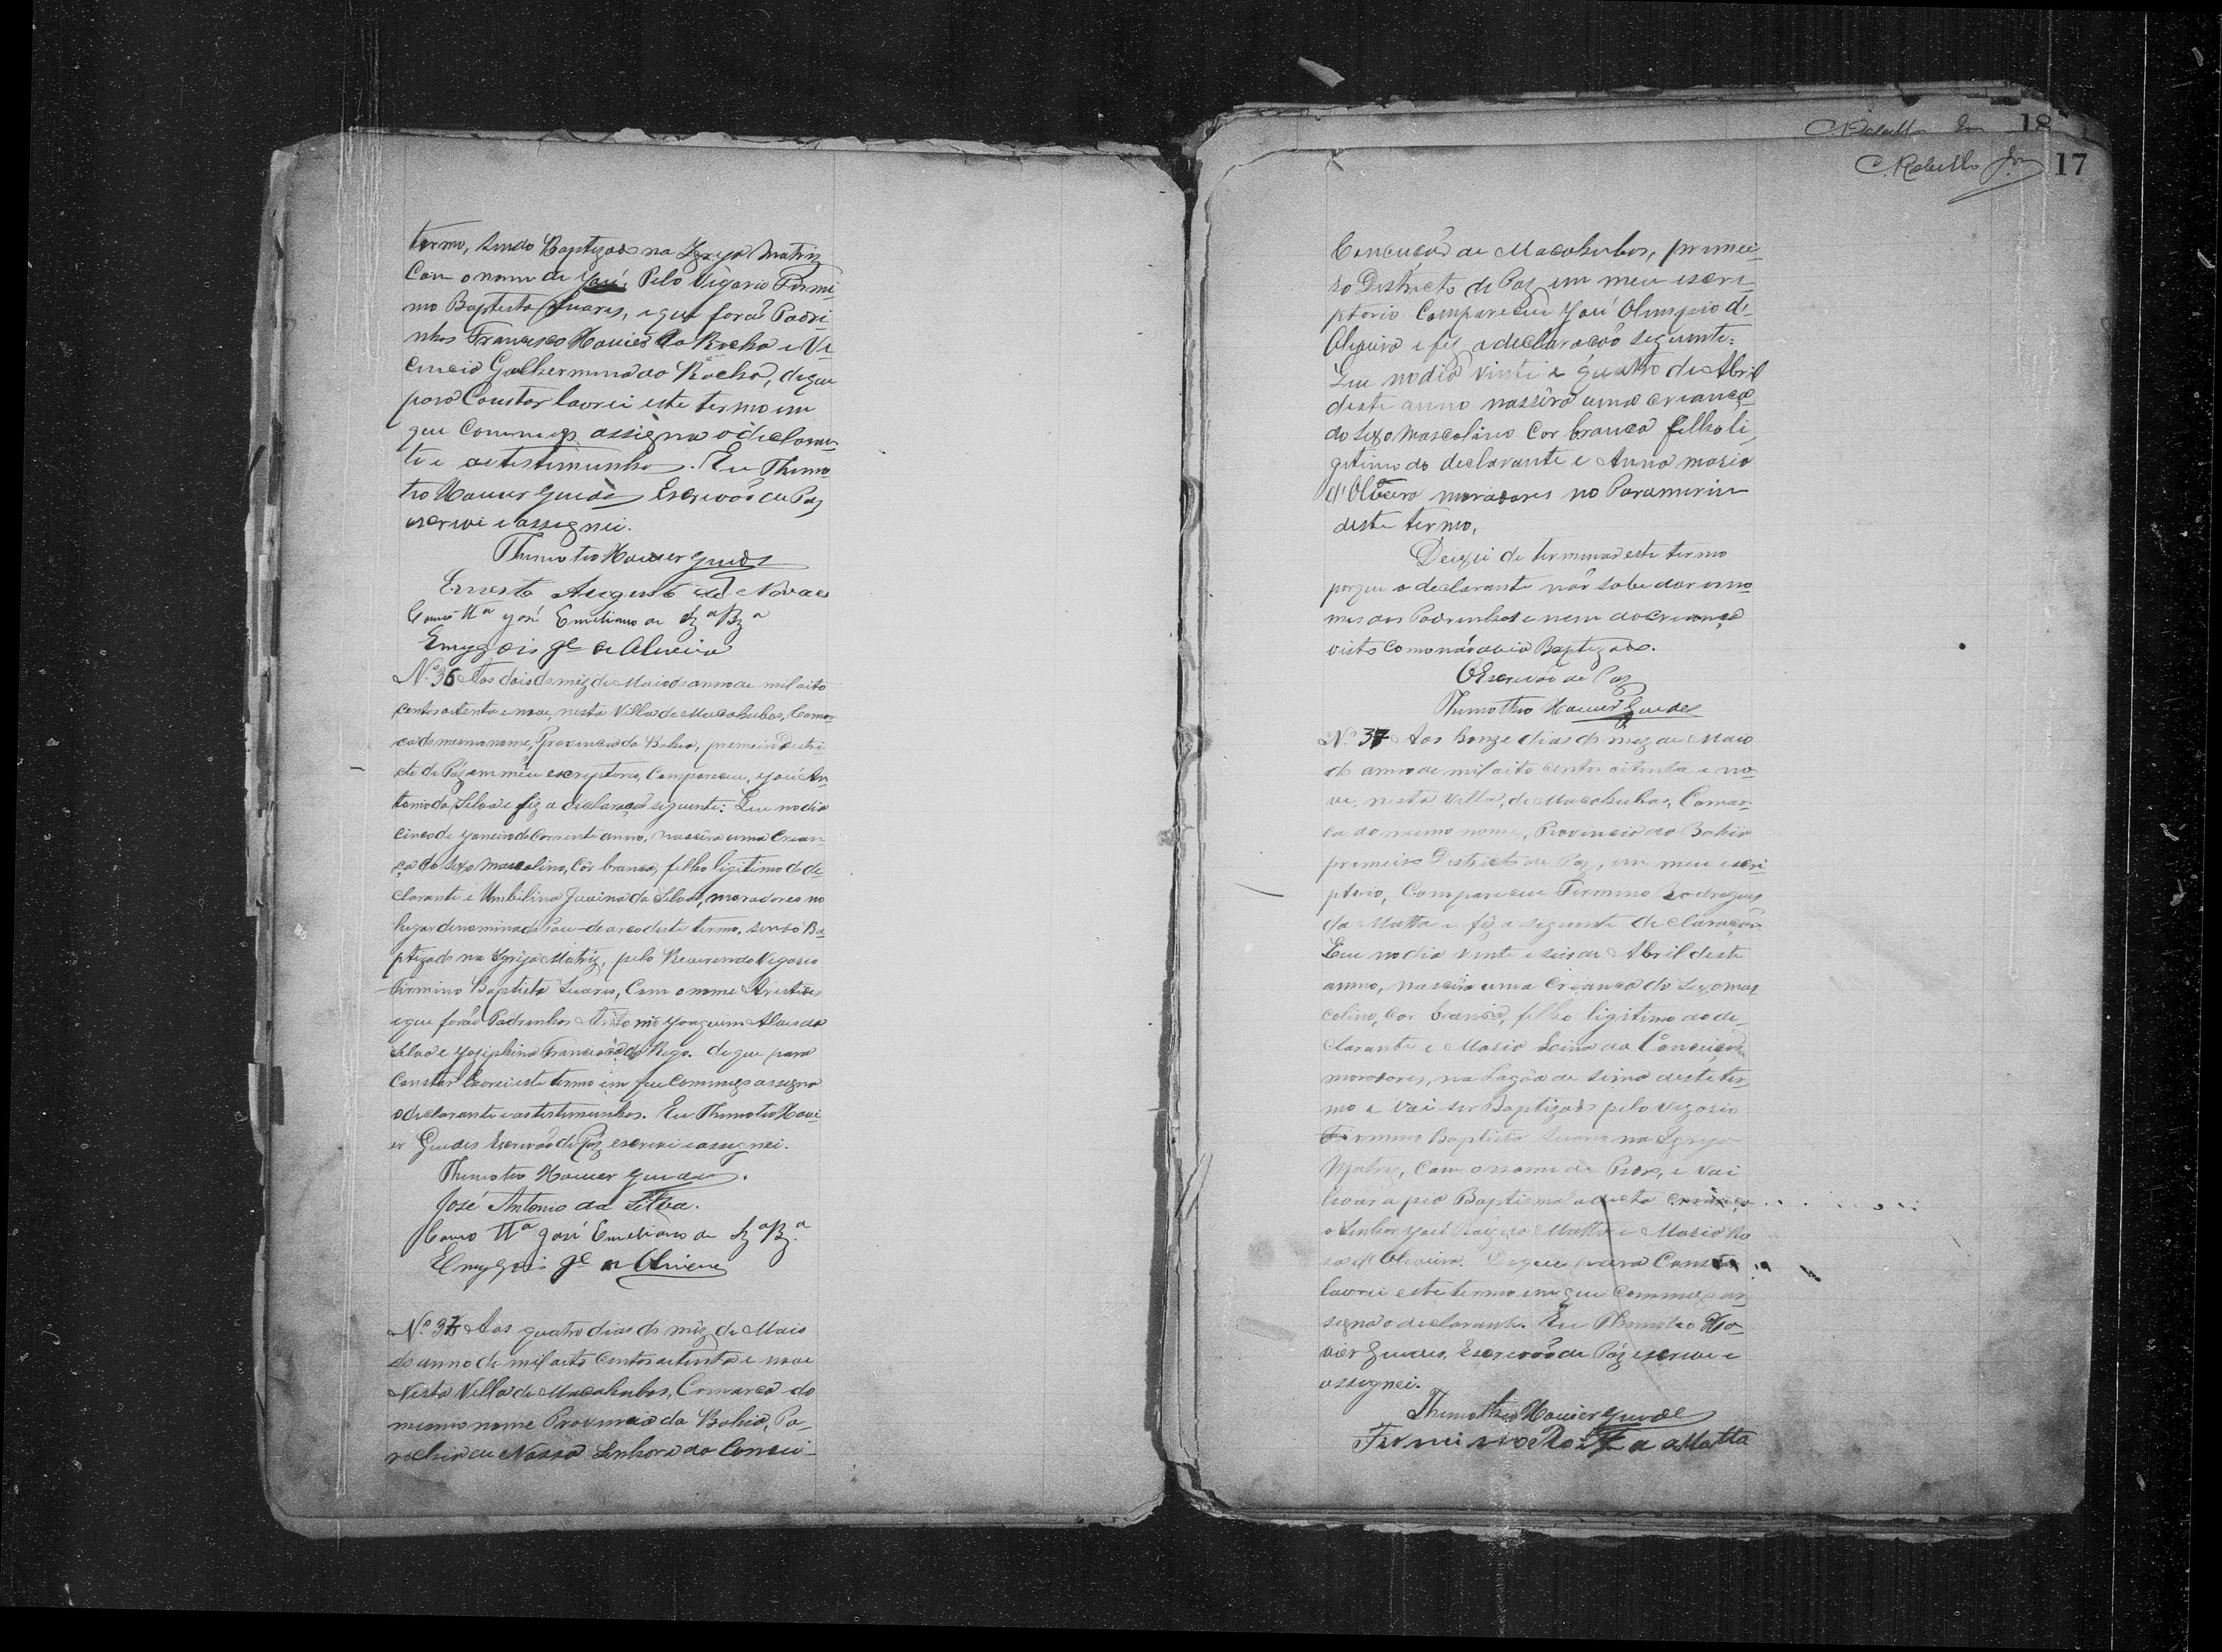 termo, sendo Baptizado na Igreja Matriz
Com o nome de José, Pelo Vigario Firmi-
no Baptista Suares, e que forão Padri-
nhos Francisco Xavier da Rocha e Vi-
cencia Guilhermina da Rocha, de que
para Constar lavrei este termo em
que Commigo assigna o declaran-
te e as testimunhas. Eu Thimo-
tio Xavier Guedes Escrivão de Paz
escrevi e assignei.
Thimotio Xavier Guedes
Ernesto Augusto de Novaes
Como ttª José Emiliano de Szª Bzª
Emygdio Je de Oliveira
Nº 36 Aos dois do mez de Maio do anno de mil oito
centos oitenta e nove, nesta Villa de Macahubas, Comar-
ca do mesmo nome, Provincia da Bahia, premeiro Destri-
cto de Páz em meu escriptorio, Compareceu, José An-
tonio da Silva e fiz a declaração seguinte: Que no dia
cinco de Janeiro do Corrente anno, nascêra uma Crian-
ça do sexo Mascolino, Côr branca, filho ligitimo do de-
clarante e Umbilina Jovina da Silva, moradores no
lugar denominado Páu-de arco deste termo, sendo Ba-
ptizado na Igreja Matriz, pelo Reverendo Vigario
Firmino Baptista Suares, Com o nome Aristides
e que forão Padrinhos Antonio Joaquim Alves da
Silva e Josiphina Francisca do Rego. de que para
Constar lavrei este termo em que Commigo assigna
o declarante e as testimunhas. Eu Thimotio Xavi-
er Guedes Escrivão de Páz escrevi e assignei.
Thimotio Xavier Guedes.
José Antonio da Silva.
Como ttª José Emiliano de Szª Bzª
Emygdio Je de Oliveira
Nº 37 Aos quatro dias do mêz de Maio
do anno de mil oito Centos oitenta e nove
Nesta Villa de Macahubas, Comarca do
mesmo nome Provincia da Bahia, Pa-
rochia de Nossa Senhora da Concei-
C. Rebello Jor 18
C. Rebello Jor 17
Conceição de Macahubas, primei-
ro Destricto de Paz em meu escri-
ptorio Compareceu José Olimpio de
Oliveira e fiz a declaração seguinte:
Que no dia vinte e quatro de Abril
deste anno nassêra uma criança
do Sexo Mascolino Cor branca filho li-
gitimo do declarante e Anna Maria
d'Oliveira moradores no Paramirim
deste termo,
Deixei de terminar este termo
porque o declarante não sabe dar os no-
mes dos Padrinhos e nem da Criança
visto como não avia Baptizado.
O Escrivão de Paz
Thimothio Xavier Guedes
Nº 37 Aos honze dias do mez de Maio
do anno de mil oito centos oitenta e no-
ve, nesta Villa, de Macahubas, Comar-
ca do mesmo nome, Provincia da Bahia
premeiro Destricto de Paz, em meu escri-
ptorio, Compareceu Firmino Rodrigues
da Matta e fiz a seguinte declaração
Que no dia vinte e seis de Abril deste
anno, nascêra uma Criança do Sexo mas-
colino, Cor branca, filho ligitimo do de-
clarante e Maria da Conceição
moradores, na Lagôa de Sima deste ter-
mo e vai ser Baptizado pelo Vigario
Firmino Baptista Suares na Igreja
Matriz, Com o nome de e vai
levar a pia Baptismal a dicta criança
o Senhor José da Matta e Maria Ro-
sa d'Oliveira. De que para Constar
lavrei este termo em que Commigo as-
signa o declarante. Eu Thimotio Xa-
vier Guedes, Escrivão de Páz escrevi e
assignei.
Thimothio Xavier Guedes
Firmino Roiz da Matta